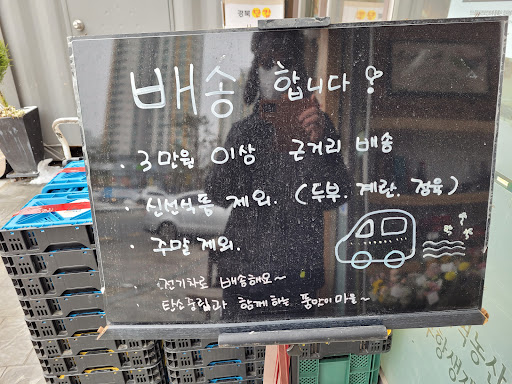 경북
배송 합니다!
· 3만원 이상 근거리 배송
· 신선식품 제외. (두부. 계란. 정육)
· 주말 제외.
· 전기차로 배송해요~
· 탄소중립과 함께하는 품안이마을~